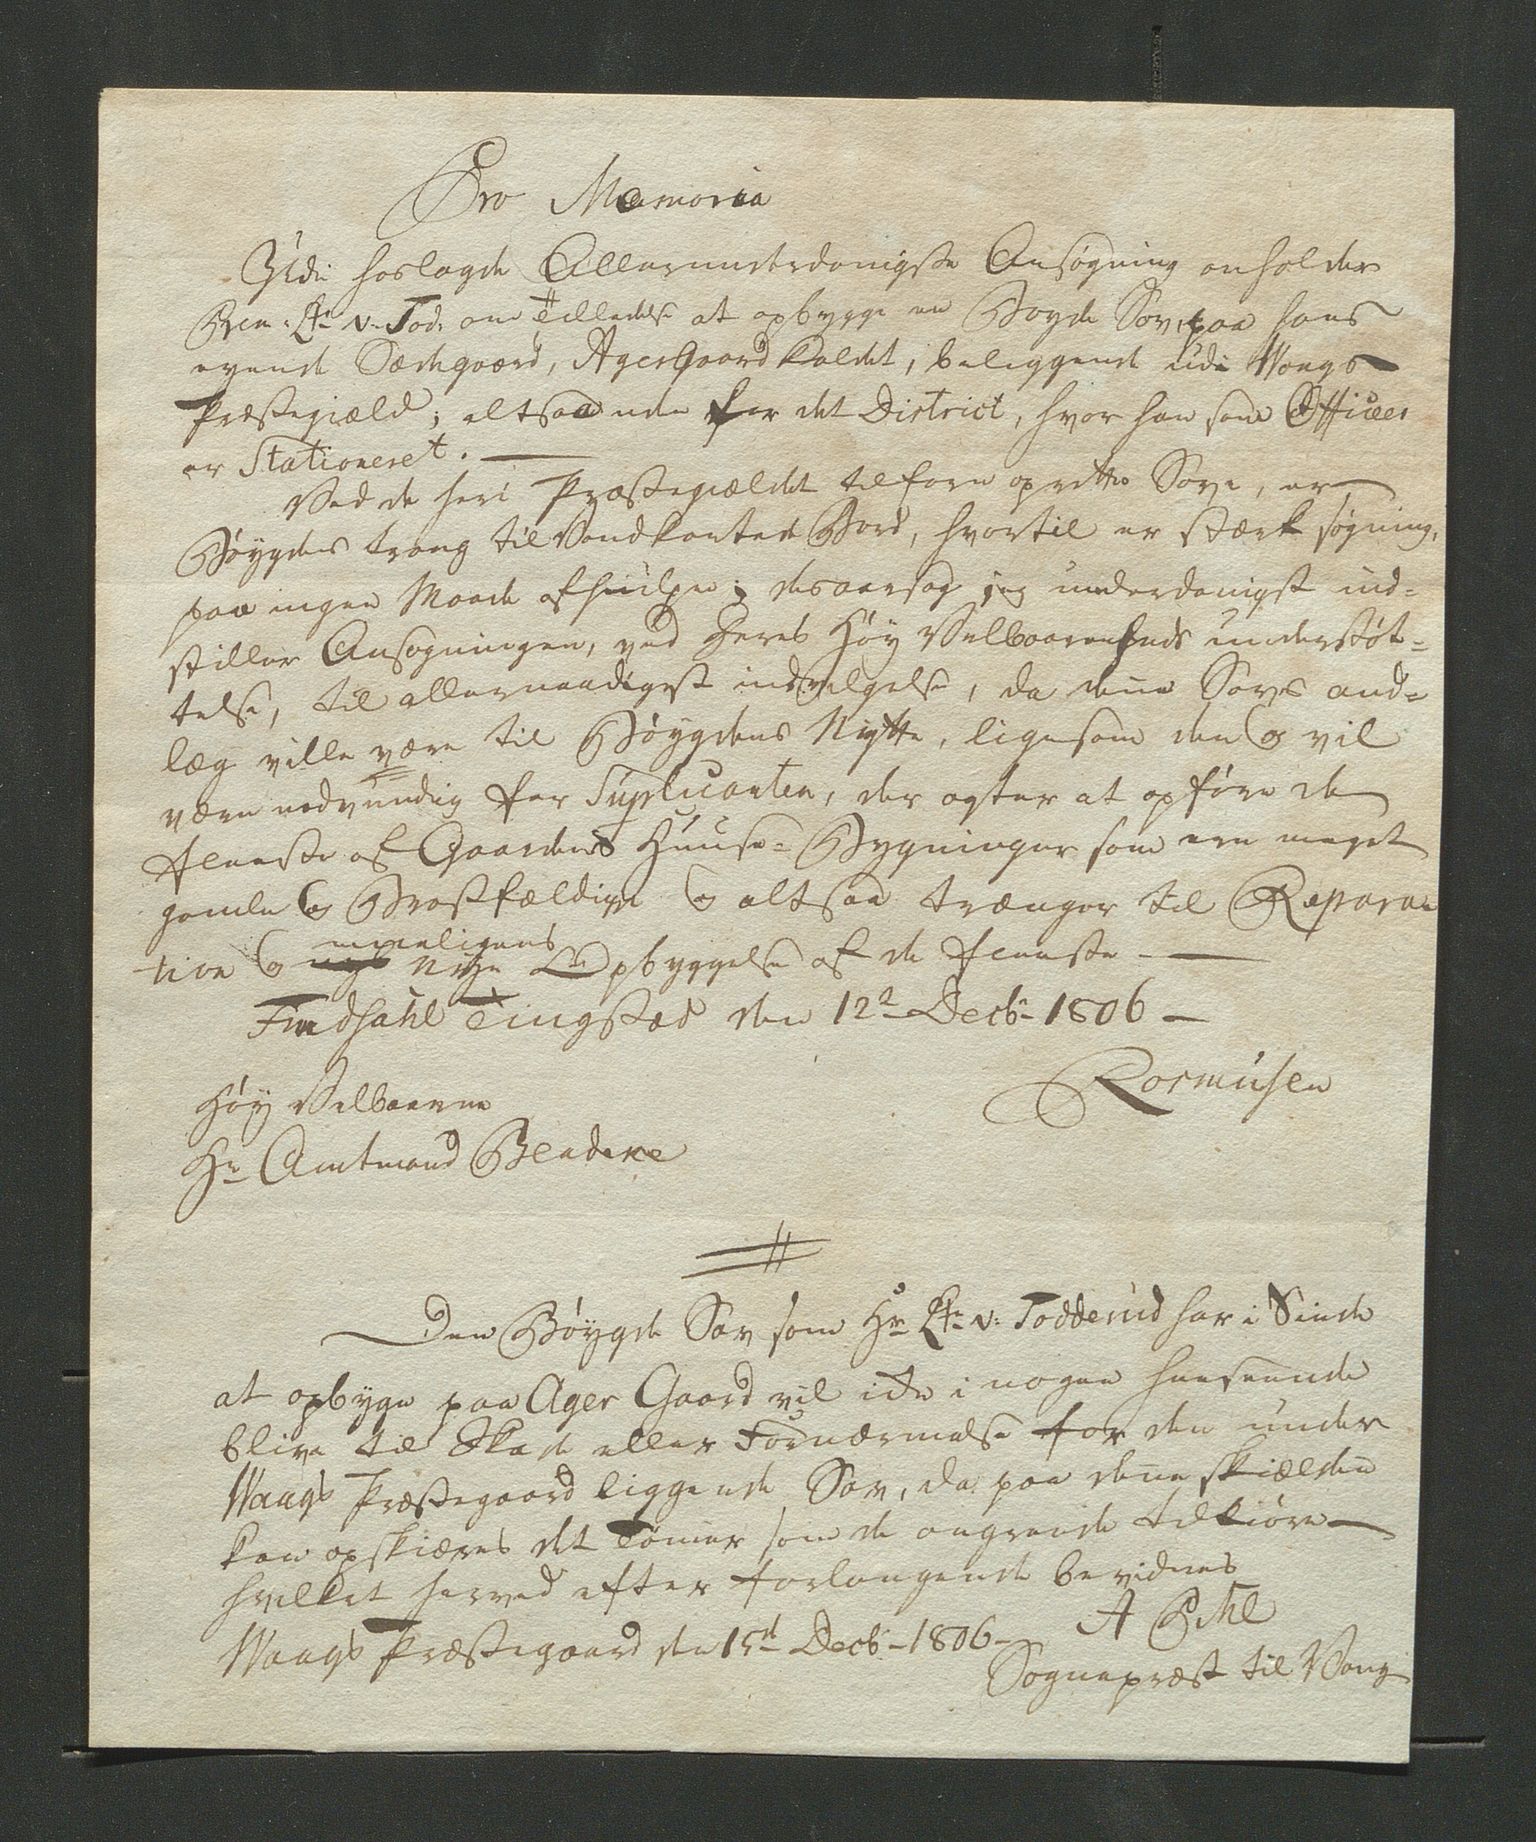 Pro Memoria
Udi hoslagde Allerunderdanigste Ansøgning anholder
Pr: Lt: v: Tod: om Tilladelse at opbygge en Bøygde Sav, paa hans
eyende Sædegaard, AgerGaard kaldet, beliggende udi Vangs
Præstegield; altsaa uden for det District, hvor han som Officer
er Stationeret. —
Ved de her i Præstegieldet tilforn oprettede Sauge, er
Bøygdens trang til Vandkantede Bord, hvortil er stærk søgning,
paa ingen Maade afhiulpen; desaarsag jeg underdanigst ind-
stiller Ansøgningen, ved Deres Høy Velbaarenheds understøt-
telse, til allernaadigst indvilgelse, da denne Savs and-
læg ville være til Bøygdens Nytte, ligesom den og vil
være nødvendig for Suplicanten, der agter at opføre de
fleeste af Gaardens Huuse-Bygninger som ere meget
gamle og Brøstfældige og altsaa trænger til Repara-
tion og meenligens nÿe Opbyggelse af de fleeste. —
Findsahl Tingstæd den 12te Decbr 1806 —
Rasmusen
Høy Velbaarne
Hr Amtmand Bendeke
Den Bøygde Sav som Hr Lt: v: Todderud har i Sinde
at opbyge paa Ager Gaard vil icke i nogen henseende
blive til Skade eller Fornærmelse for den under
Vangs Præstegaard liggende Sav, da paa denne skielden
kan opskiæres det Tømer som de angrendsende tilkiøre
hvilket herved efter forlangende bevidnes
Vangs Præstegaard den 15d Decbr 1806 — A Pihl
Sognepræst til Vang